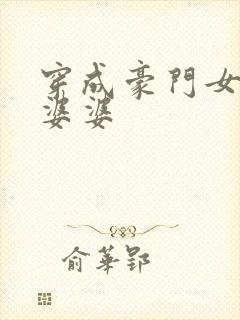 穿成豪門女
婆婆
俞華郢